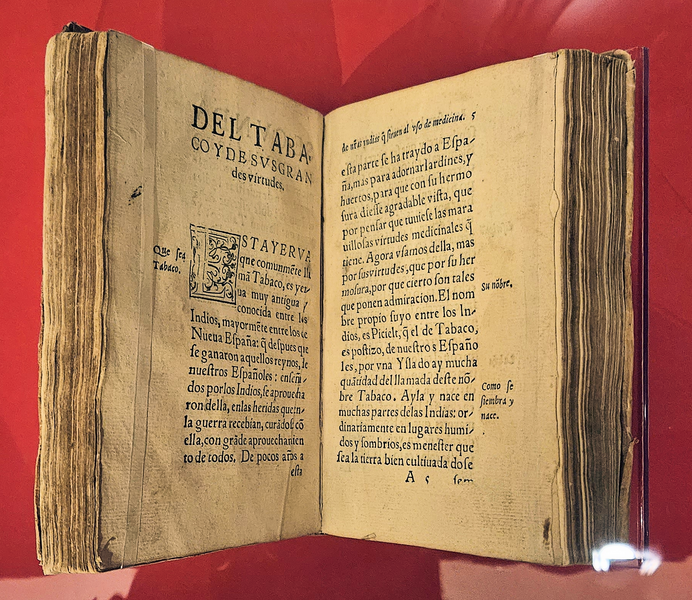 DEL TABA-
CO Y DE SVS GRAN
des virtudes.
Que sea
Tabaco.
ESTA YERVA
que comunmẽte llã
mã Tabaco, es yer-
ua muy antigua y
conocida entre los
Indios, mayormẽte entre los de
Nueua España: q̃ despues que
se ganaron aquellos reynos, de
nuestros Españoles: enseña-
dos por los Indios, se aprouecha
ron della, en las heridas que en
la guerra recebian, curãdose cõ
ella, con grãde aprouechamien
to de todos. De pocos años a
esta
de nr̃as yndias q̃ siruen al vso de medicina. 5
esta parte se ha traydo a Espa-
ña, mas para adornar lardines, y
huertos, para que con su hermo
sura diesse agradable vista, que
por pensar que tuuiesse las mara
uillosas virtudes medicinales q̃
tiene. Agora vsamos della, mas
por sus virtudes, que por su her
mosura, porque cierto son tales
que ponen admiracion. El nom
Su nõbre.
bre propio suyo entre los In-
dios, es Picielt, q̃ el de Tabaco,
es postizo, de nuestros Españo
les, por vna Ysla do ay mucha
quãtidad del llamada deste nõ-
bre Tabaco. Ayla y nace en
Como se
siembra y
nace.
muchas partes delas Indias: or-
dinariamente en lugares humi-
dos y sombrios, es menester que
sea la tierra bien cultiuada do se
A 5 sem